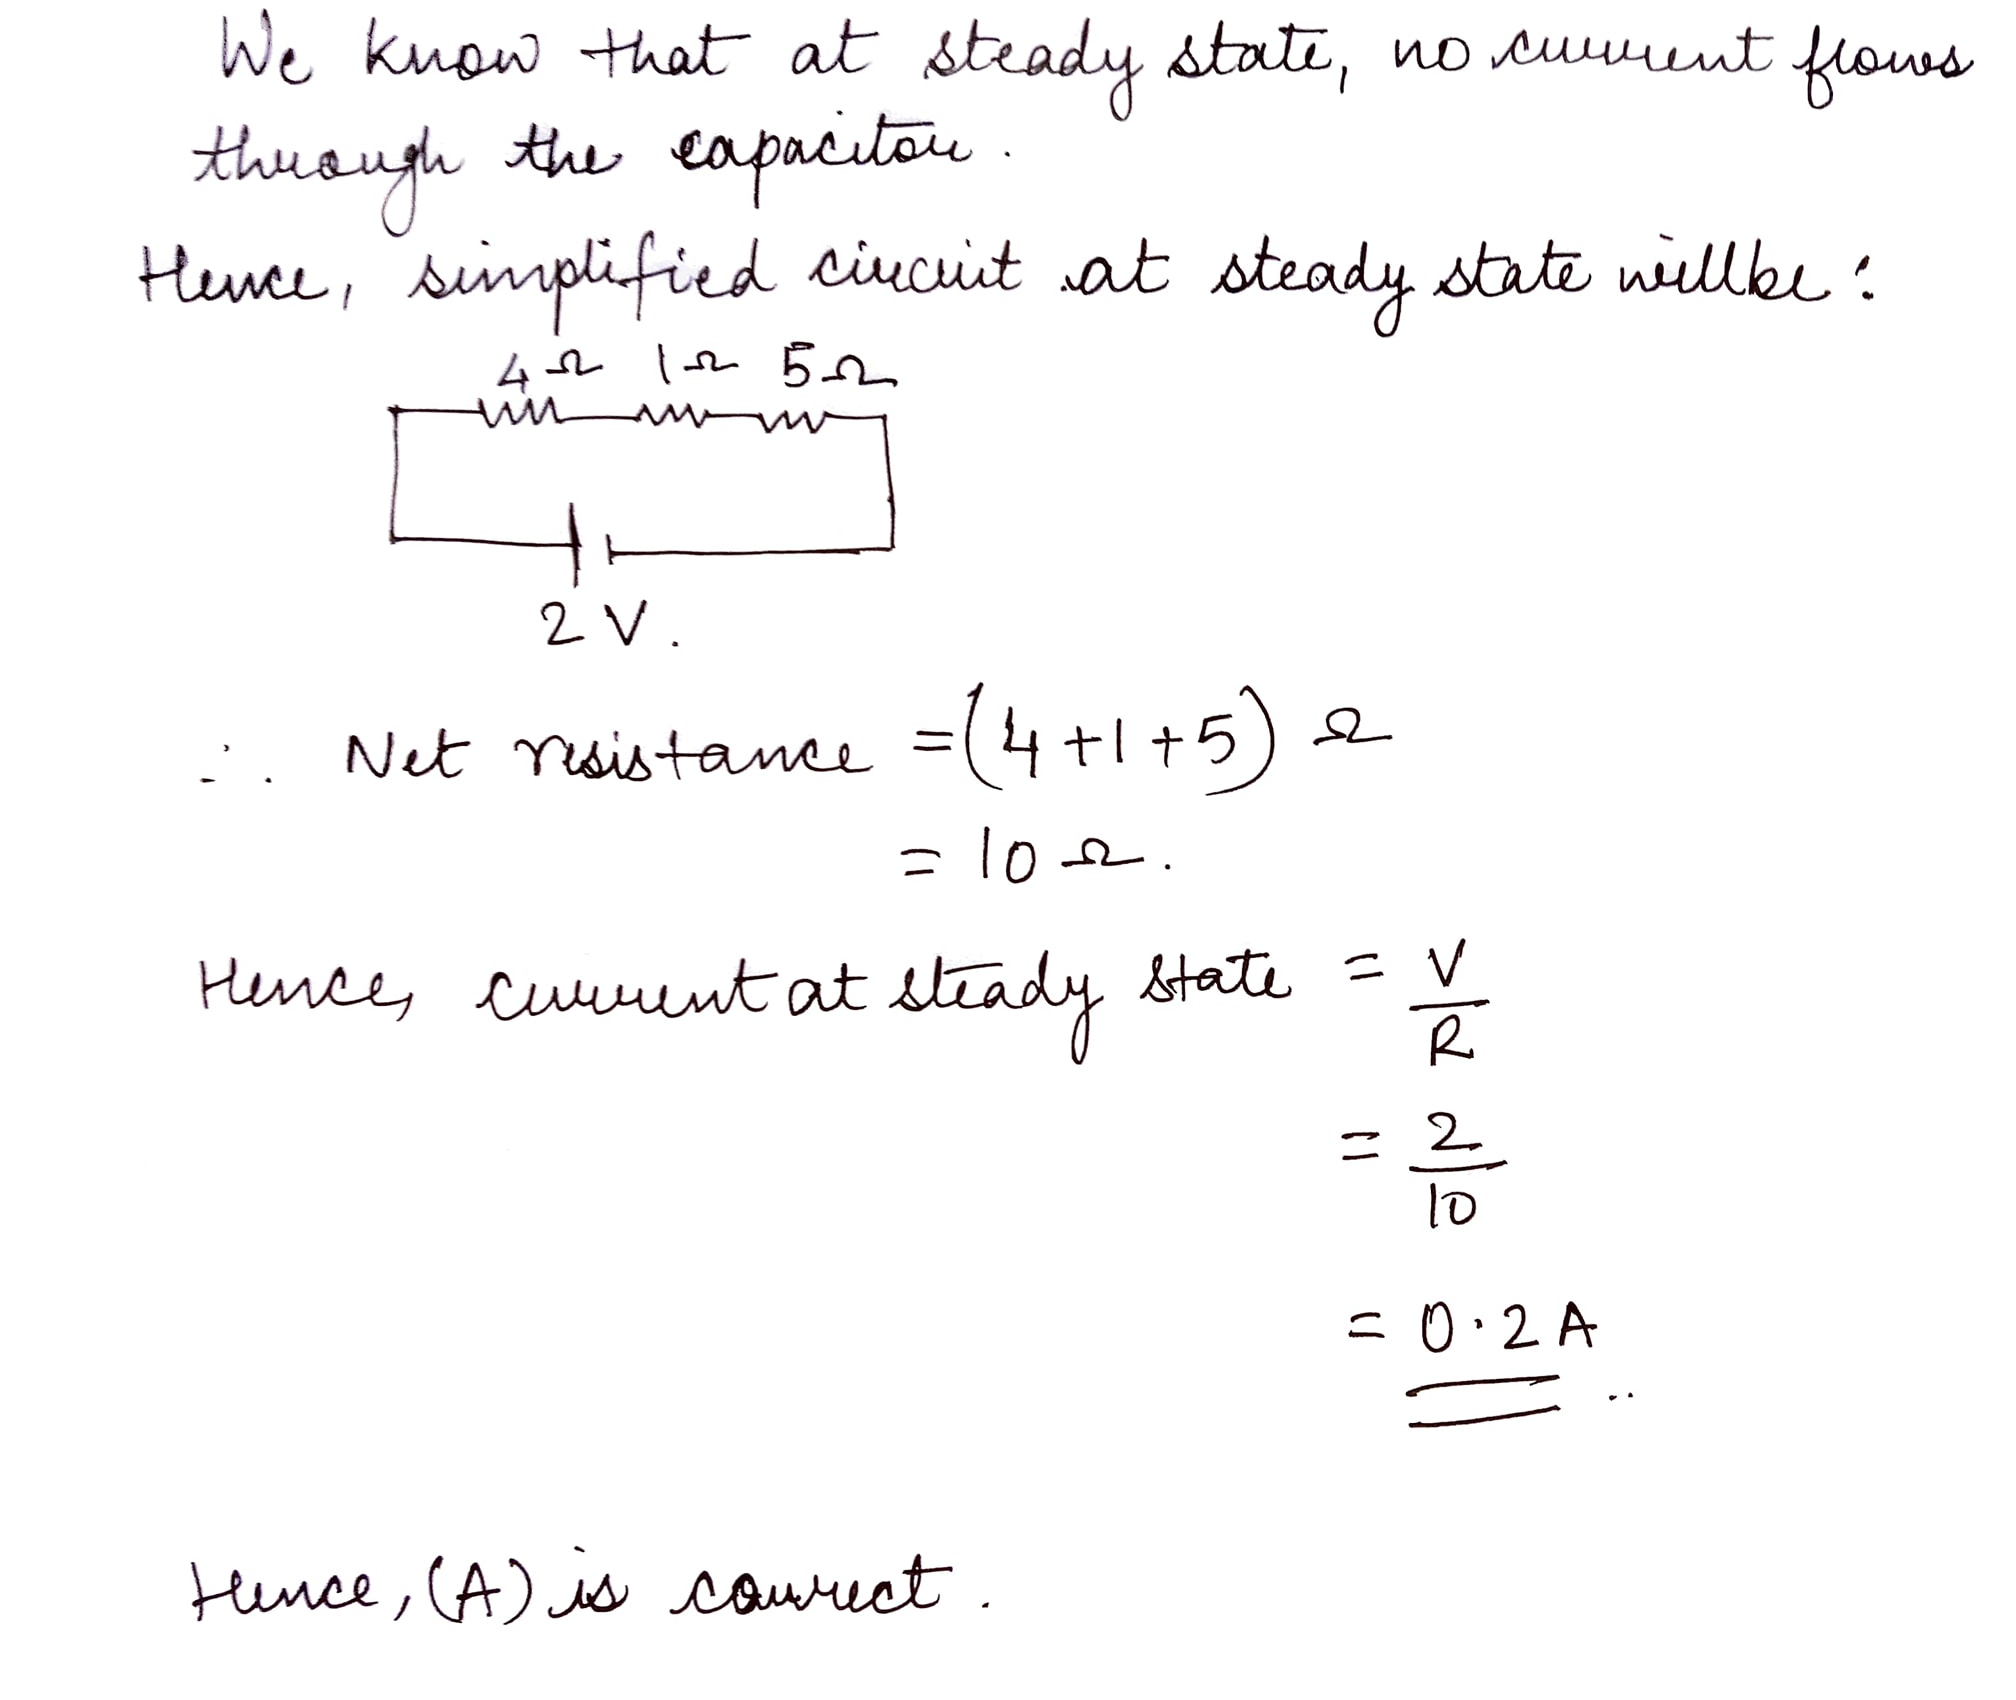 We know that at steady state, no current flows
through the capacitor.
Hence, simplified circuit at steady state will be :
4Ω 1Ω 5Ω
2 V.
∴ Net resistance = (4+1+5) Ω
= 10 Ω.
Hence, current at steady state = V/R
= 2/10
= 0.2 A
Hence, (A) is correct.